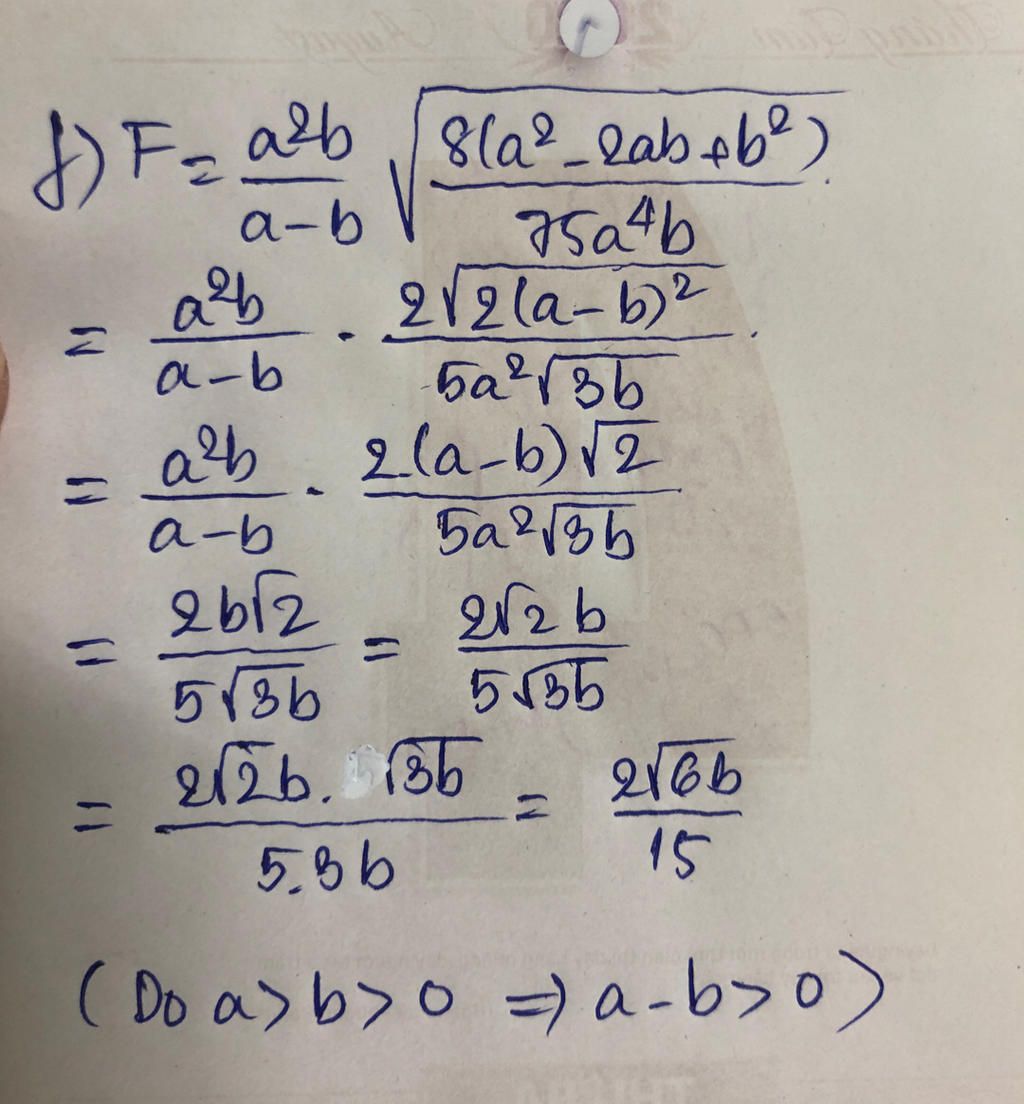 Tháng Tám 2 August
f) F = \frac{a^2b}{a-b} \sqrt{\frac{8(a^2-2ab+b^2)}{75a^4b}}
= \frac{a^2b}{a-b} . \frac{2\sqrt{2(a-b)^2}}{5a^2\sqrt{3b}}
= \frac{a^2b}{a-b} . \frac{2(a-b)\sqrt{2}}{5a^2\sqrt{3b}}
= \frac{2b\sqrt{2}}{5\sqrt{3b}} = \frac{2\sqrt{2}b}{5\sqrt{3b}}
= \frac{2\sqrt{2}b.\sqrt{3b}}{5.3b} = \frac{2\sqrt{6b}}{15}
(Do a>b>0 => a-b>0)